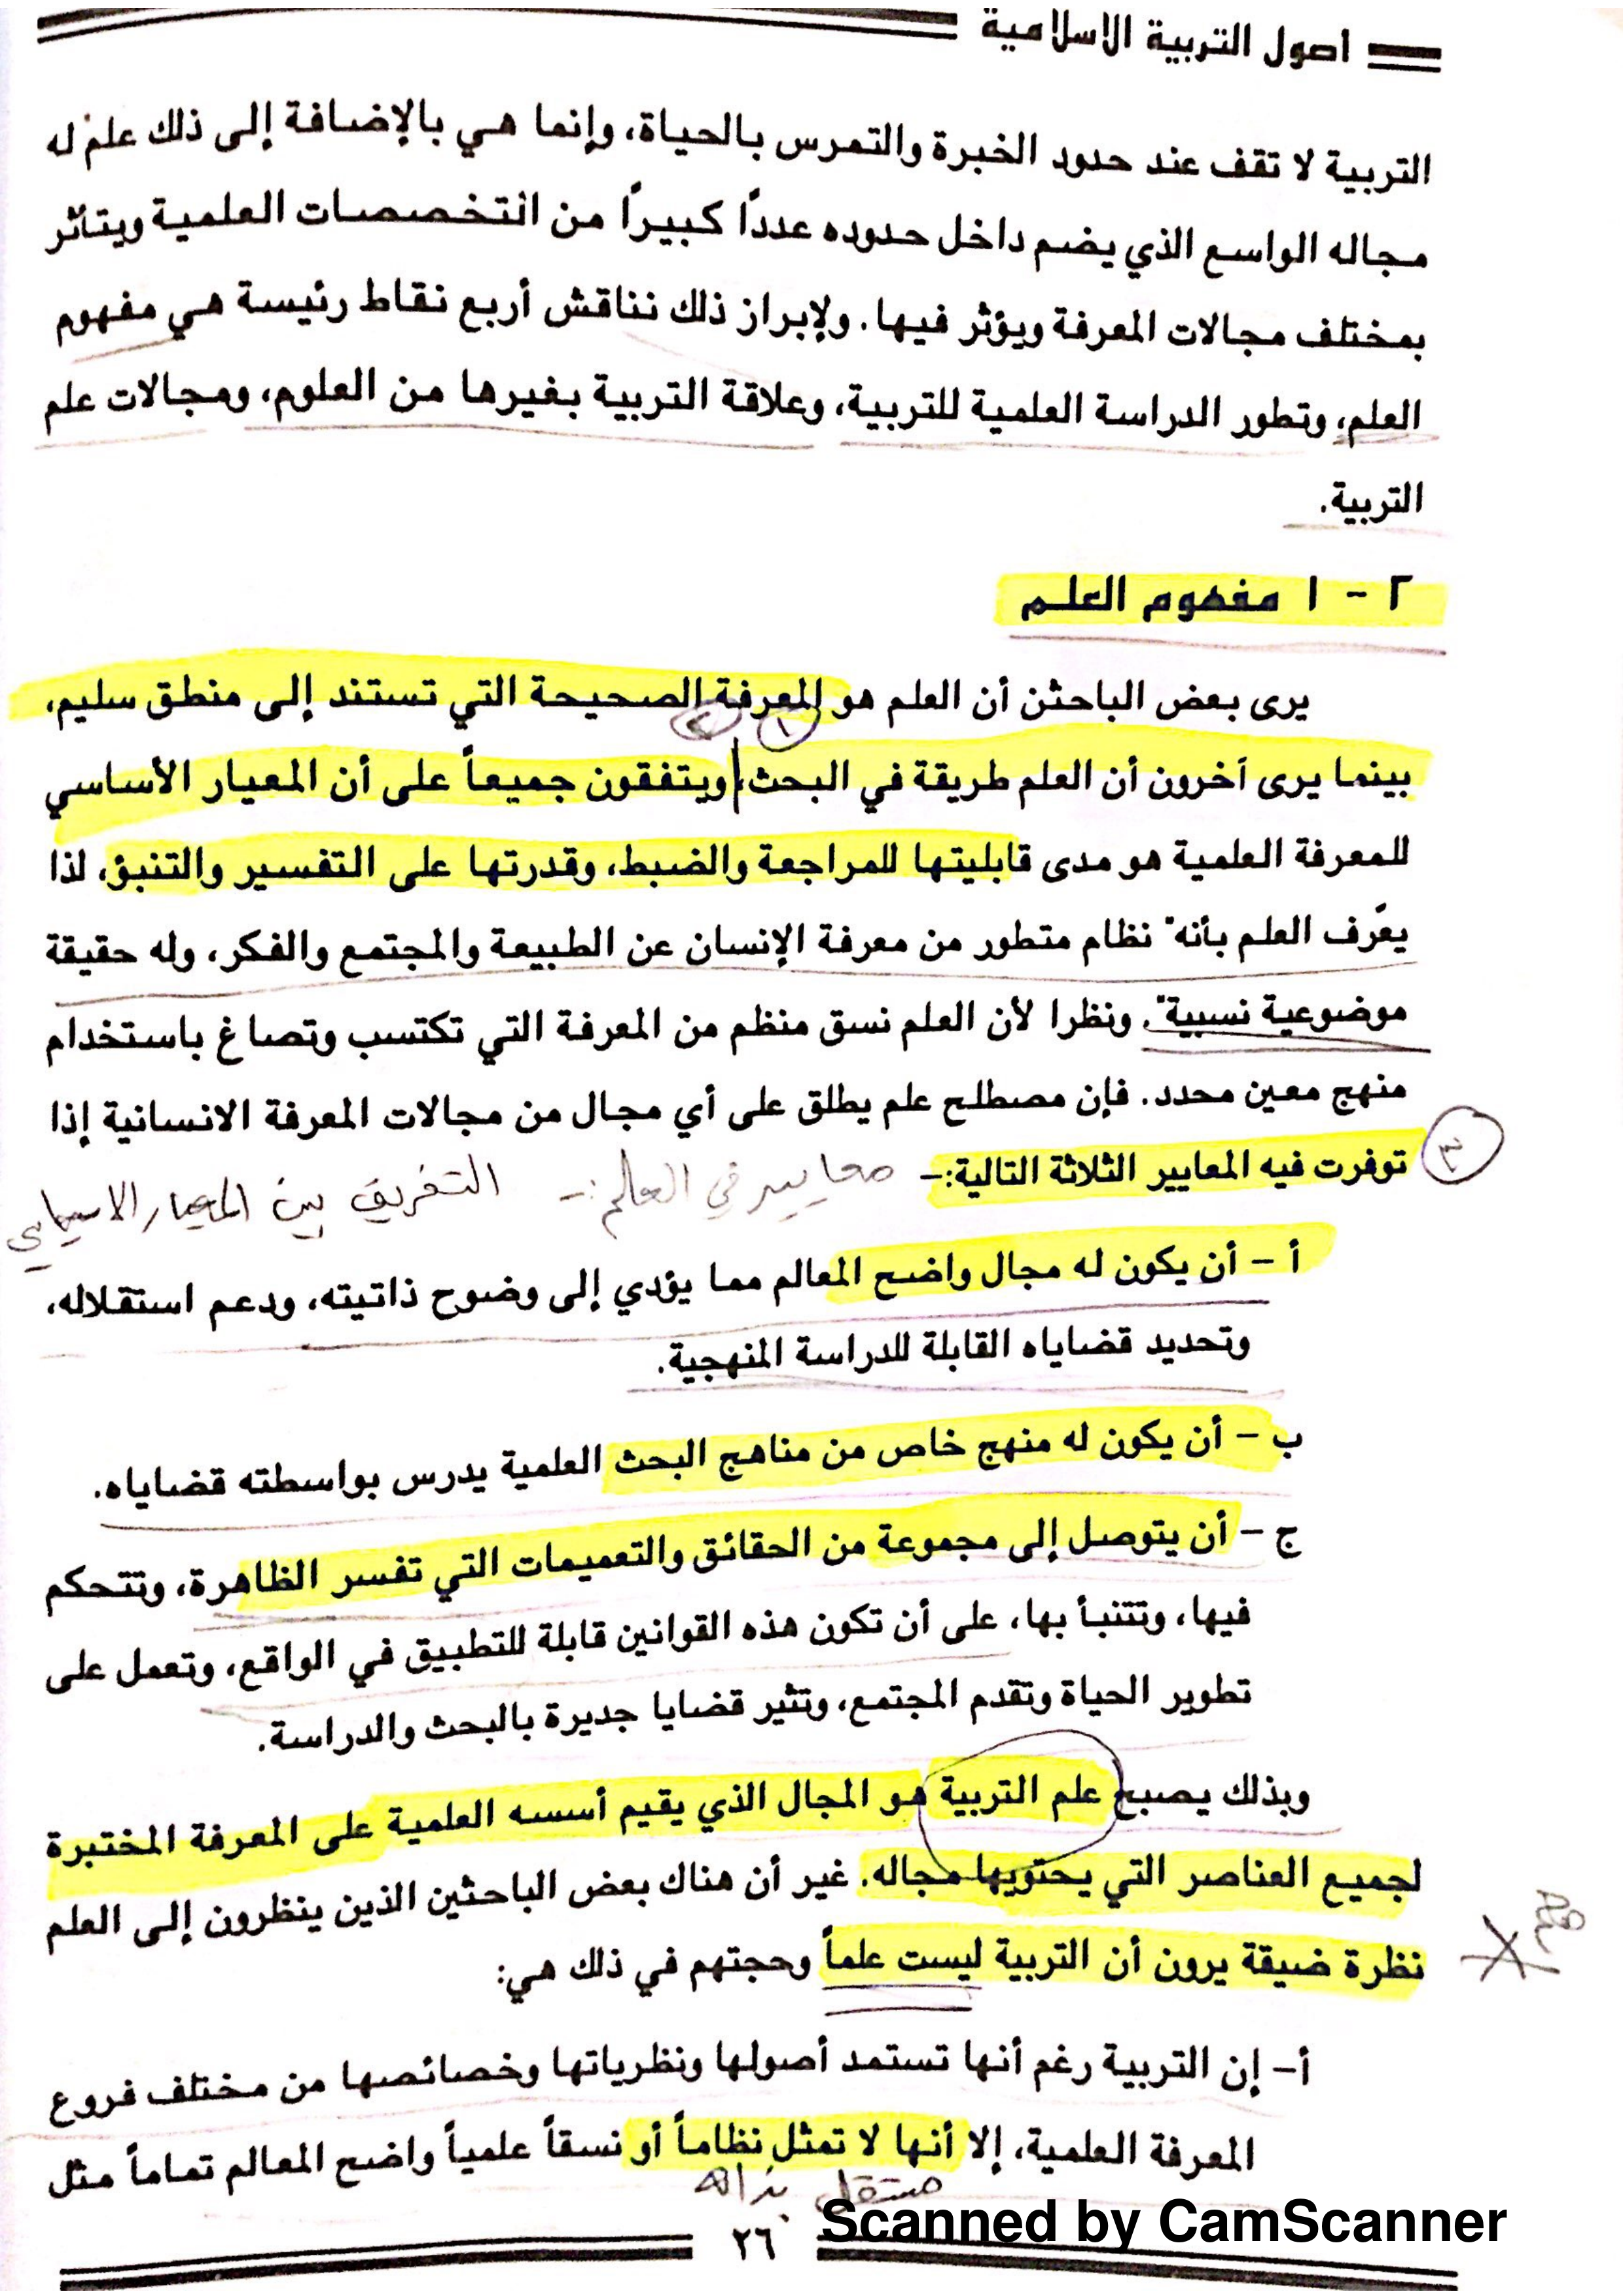 اصول التربية الاسلامية
التربية لا تقف عند حدود الخبرة والتمرس بالحياة، وإنما هي بالإضافة إلى ذلك علم له
مجاله الواسع الذي يضم داخل حدوده عددًا كبيرًا من التخصصات العلمية ويتأثر
بمختلف مجالات المعرفة ويؤثر فيها. ولإبراز ذلك نناقش أربع نقاط رئيسة هي مفهوم
العلم، وتطور الدراسة العلمية للتربية، وعلاقة التربية بغيرها من العلوم، ومجالات علم
التربية.
٢ - ١ مفهوم العلم
يرى بعض الباحثن أن العلم هو المعرفة الصحيحة التي تستند إلى منطق سليم،
١ ٢
بينما يرى آخرون أن العلم طريقة في البحث، ويتفقون جميعاً على أن المعيار الأساسي
للمعرفة العلمية هو مدى قابليتها للمراجعة والضبط، وقدرتها على التفسير والتنبؤ، لذا
يعّرف العلم بأنه" نظام متطور من معرفة الإنسان عن الطبيعة والمجتمع والفكر، وله حقيقة
موضوعية نسبية". ونظرا لأن العلم نسق منظم من المعرفة التي تكتسب وتصاغ باستخدام
منهج معين محدد. فإن مصطلح علم يطلق على أي مجال من مجالات المعرفة الانسانية إذا
٣ توفرت فيه المعايير الثلاثة التالية:- معايير في العالم :- التفريق بين المعيار الاسياسي
أ - أن يكون له مجال واضح المعالم مما يؤدي إلى وضوح ذاتيته، ودعم استقلاله،
وتحديد قضاياه القابلة للدراسة المنهجية.
ب - أن يكون له منهج خاص من مناهج البحث العلمية يدرس بواسطته قضاياه.
ج - أن يتوصل إلى مجموعة من الحقائق والتعميمات التي تفسر الظاهرة، وتتحكم
فيها، وتتنبأ بها، على أن تكون هذه القوانين قابلة للتطبيق في الواقع، وتعمل على
تطوير الحياة وتقدم المجتمع، وتثير قضايا جديرة بالبحث والدراسة.
وبذلك يصبح علم التربية هو المجال الذي يقيم أسسه العلمية على المعرفة المختبرة
لجميع العناصر التي يحتويها مجاله. غير أن هناك بعض الباحثين الذين ينظرون إلى العلم
نظرة ضيقة يرون أن التربية ليست علماً وحجتهم في ذلك هي:
أ- إن التربية رغم أنها تستمد أصولها ونظرياتها وخصائصها من مختلف فروع
المعرفة العلمية، إلا أنها لا تمثل نظاماً أو نسقاً علمياً واضح المعالم تماماً مثل
مستقل بذاته
٢٦
Scanned by CamScanner